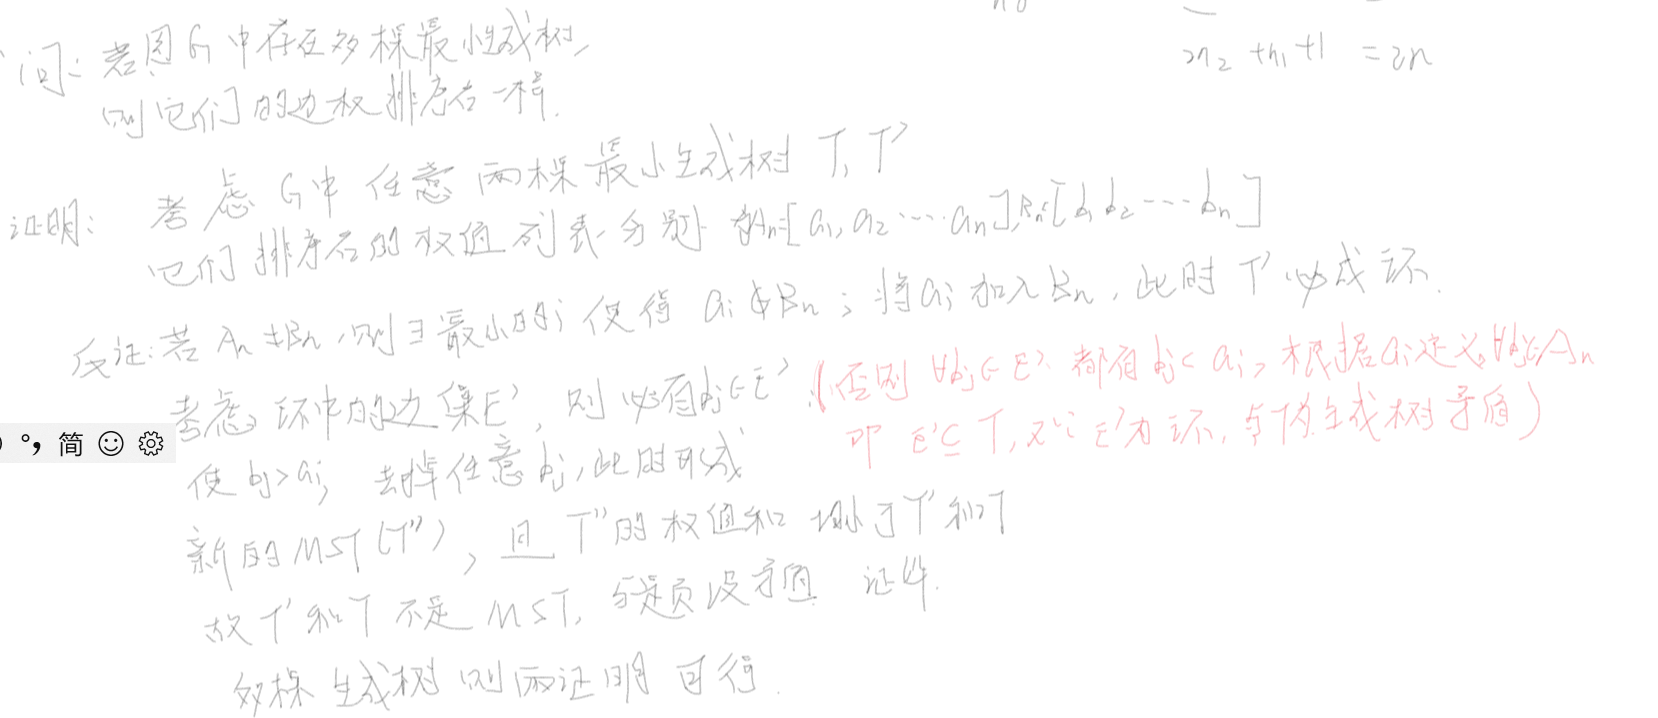 2n₂ +n₁+1 = 2n
问: 若图G中存在多棵最小生成树,
则它们的边权排序后一样.
证明: 考虑G中任意两棵最小生成树 T, T'
它们排序后的权值列表分别 Aₙ=[a₁,a₂……aₙ],Bₙ=[b₁ b₂……bₙ]
反证: 若Aₙ≠Bₙ,则∃最小的i使得 aᵢ∉Bₙ; 将aᵢ加入Bₙ, 此时 T' 必成环.
考虑环中的边集E', 则必有bⱼ∈E' (否则 ∀bⱼ∈E' 都有bⱼ<aᵢ, 根据aᵢ定义,∀bⱼ∈Aₙ
即 E'⊆T, 又∵E'为环, 与T为生成树矛盾)
使bⱼ>aᵢ, 去掉任意bⱼ,此时形成
新的MST(T''), 且 T''的权值和 小于T'和T
故T'和T 不是 MST, 与是矛盾 证毕.
多棵生成树则两证明可得.
简